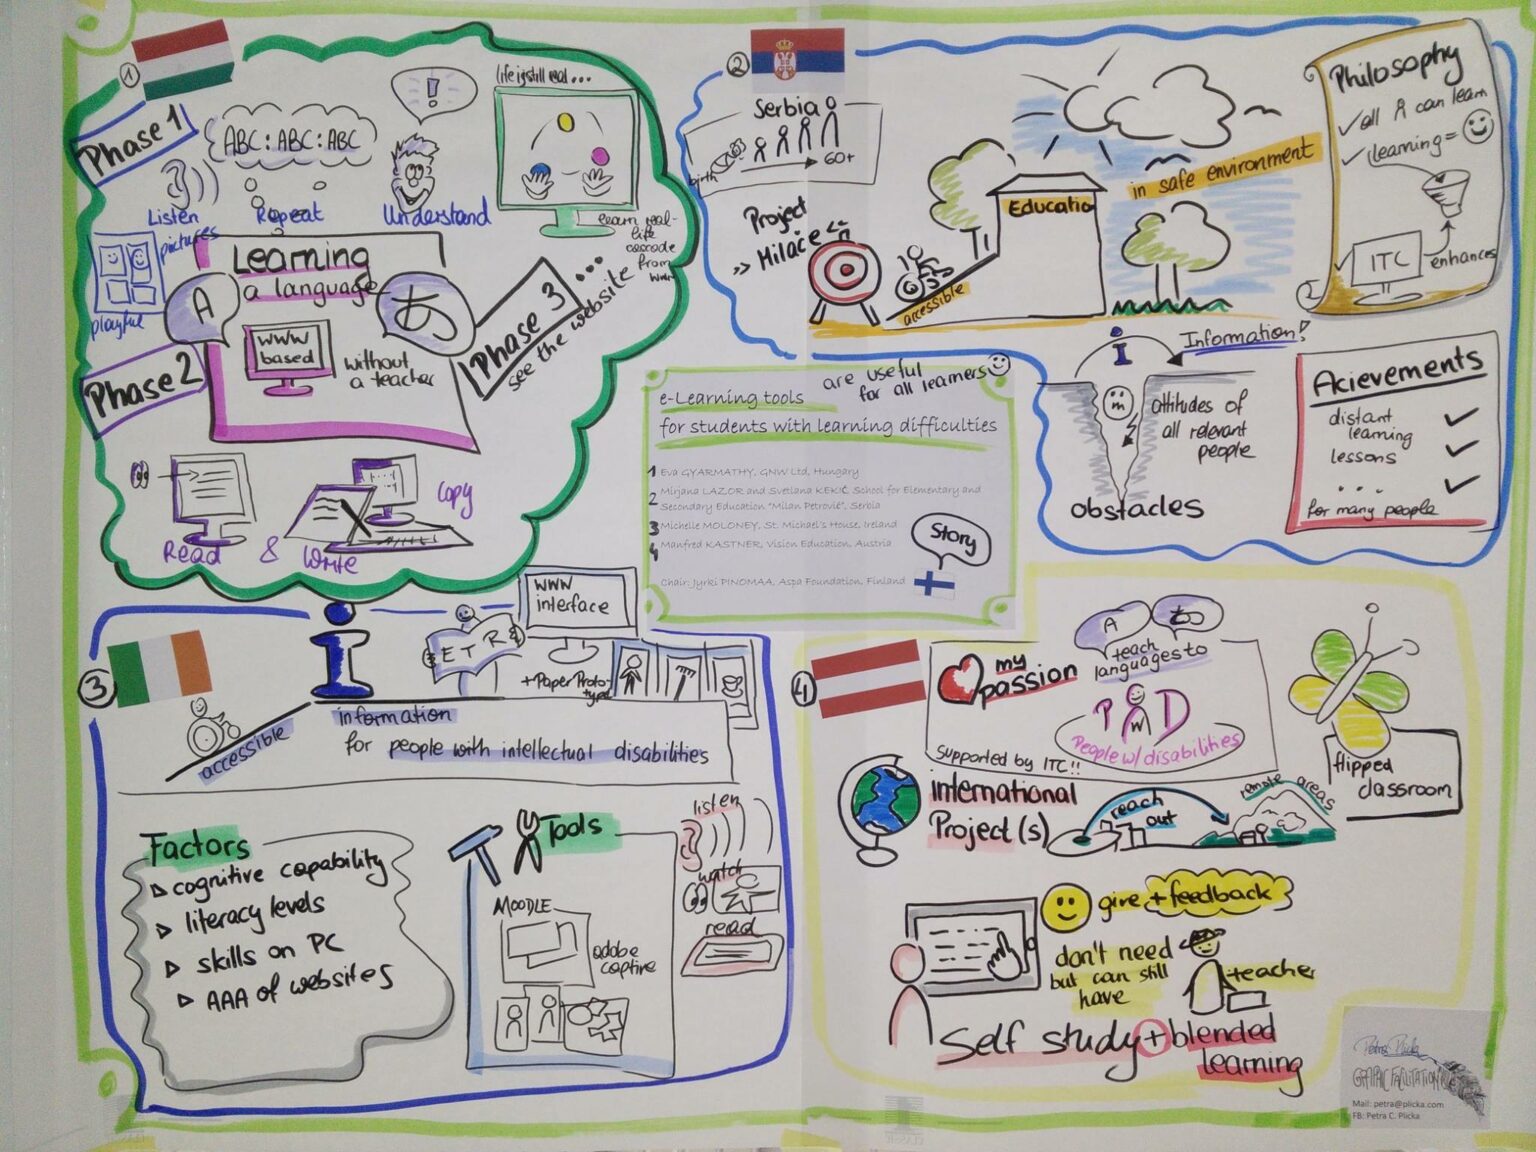 1
Phase 1
ABC:ABC:ABC
!
life is still real...
Listen
Repeat
Understand
pictures
playful
Learning
a language
A
あ
www
based
without
a teacher
Phase 2
Phase 3 ...
see the website
learn real-
life
from
www
Read & Write
Copy
2
Serbia
birth
60+
Project
Milace
accessible
Education
in safe environment
Philosophy
✓ all can learn
✓ learning =
✓ ITC
enhances
i
Information!
attitudes of
all relevant
people
obstacles
Acievements
distant
learning ✓
lessons ✓
... ✓
for many people
e-Learning tools
are useful
for all learners
for students with learning difficulties
1 Eva GYARMATHY, GNW Ltd, Hungary
2 Mirjana LAZOR and Svetlana KEKIĆ, School for Elementary and
Secondary Education "Milan Petrović", Serbia
3 Michelle MOLONEY, St. Michael's House, Ireland
4 Manfred KASTNER, Vision Education, Austria
Chair: Jyrki PINOMAA, Aspa Foundation, Finland
Story
3
i
E T R
www
interface
+Paper Proto-
types
accessible
information
for people with intellectual disabilities
Factors
▷ cognitive capability
▷ literacy levels
▷ skills on PC
▷ AAA of websites
Tools
MOODLE
adobe
captive
listen
watch
read
4
my
passion
A
あ
teach
languages to
P W D
People w/ disabilities
supported by ITC!!
flipped
classroom
international
Project(s)
reach
out
remote areas
give + feedback
don't need
but can still
have
teacher
Self study + blended
learning
Petra Plicka
GRAPHIC FACILITATION
Mail: petra@plicka.com
FB: Petra C. Plicka
CLASSIC